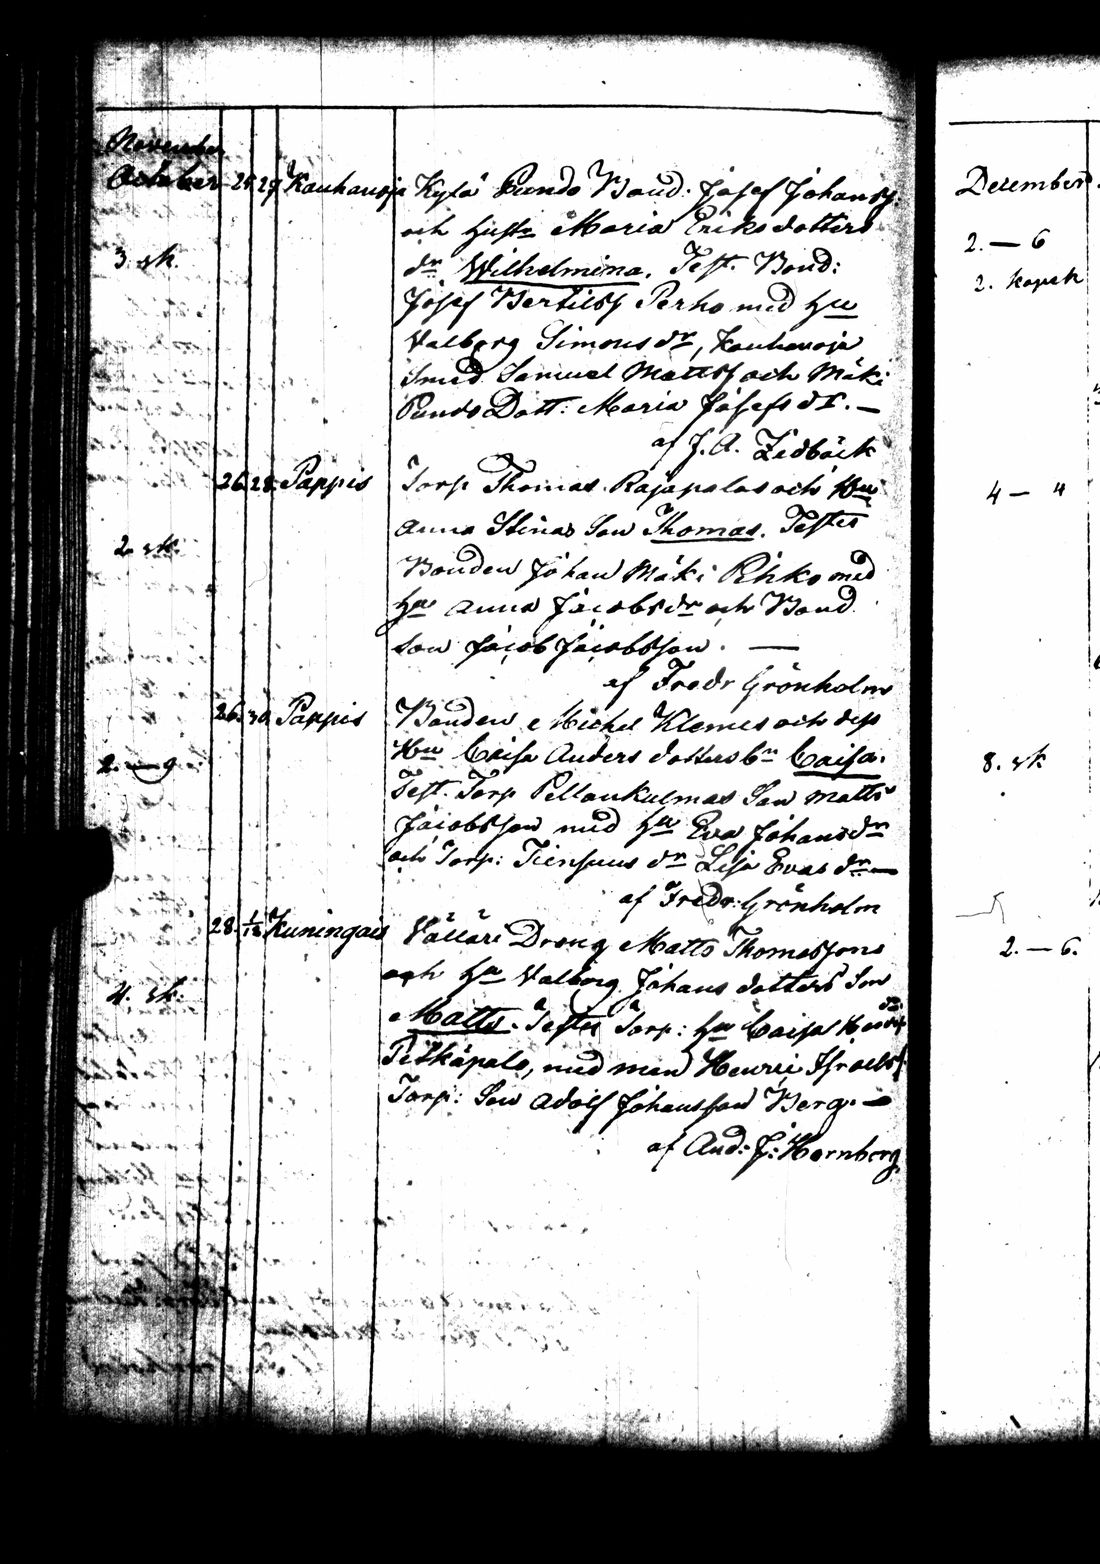 November
October 25. 27. Kauhavoja Kylä Pundo Bond. Josef Johanss.
och Hustr Maria Eriksdotters
3. rk. dr Wilhelmina. Test. Bond:
Josef Bertilss Perho med Hu
Valborg Simonsdr, Kauhavoja
Smed Samuel Mattss och Mäki
Pundo Dott: Maria Josefs dr. —
af J. A. Lidbäck
26. 28. Pappis Torp Thomas Rajapalos och Hu
Anna Stinas Son Thomas. Testes
2. rk. Bonden Johan Mäki Pihko med
Hu Anna Jacobsdr och Bond
Son Jacob Jacobsson. —
af Fredr Grönholm
26. 30. Pappis Bonden Michel Klemes och dess
Hu Caisa Anders dotters bn Caisa.
2. — 9. Test. Torp Pellonkulmas Son Matts
Jacobsson med Hu Eva Johansdr
och Torp: Tiensuus dr Lisa Evas dr —
af Fredr: Grönholm
28. 1/12 Kuningais Välläri Dreng Matts Thomassons
och Hu Valborg Johans dotters Son
4. rk. Matts. Testes Torp: Hu Caisa
Petkäpalo, med man Henric Israelss
Torp: Son Adolf Johansson Berg. —
af And: J: Hornberg
December
2. — 6
2. kopek
4 — 4
8. rk
2. — 6.